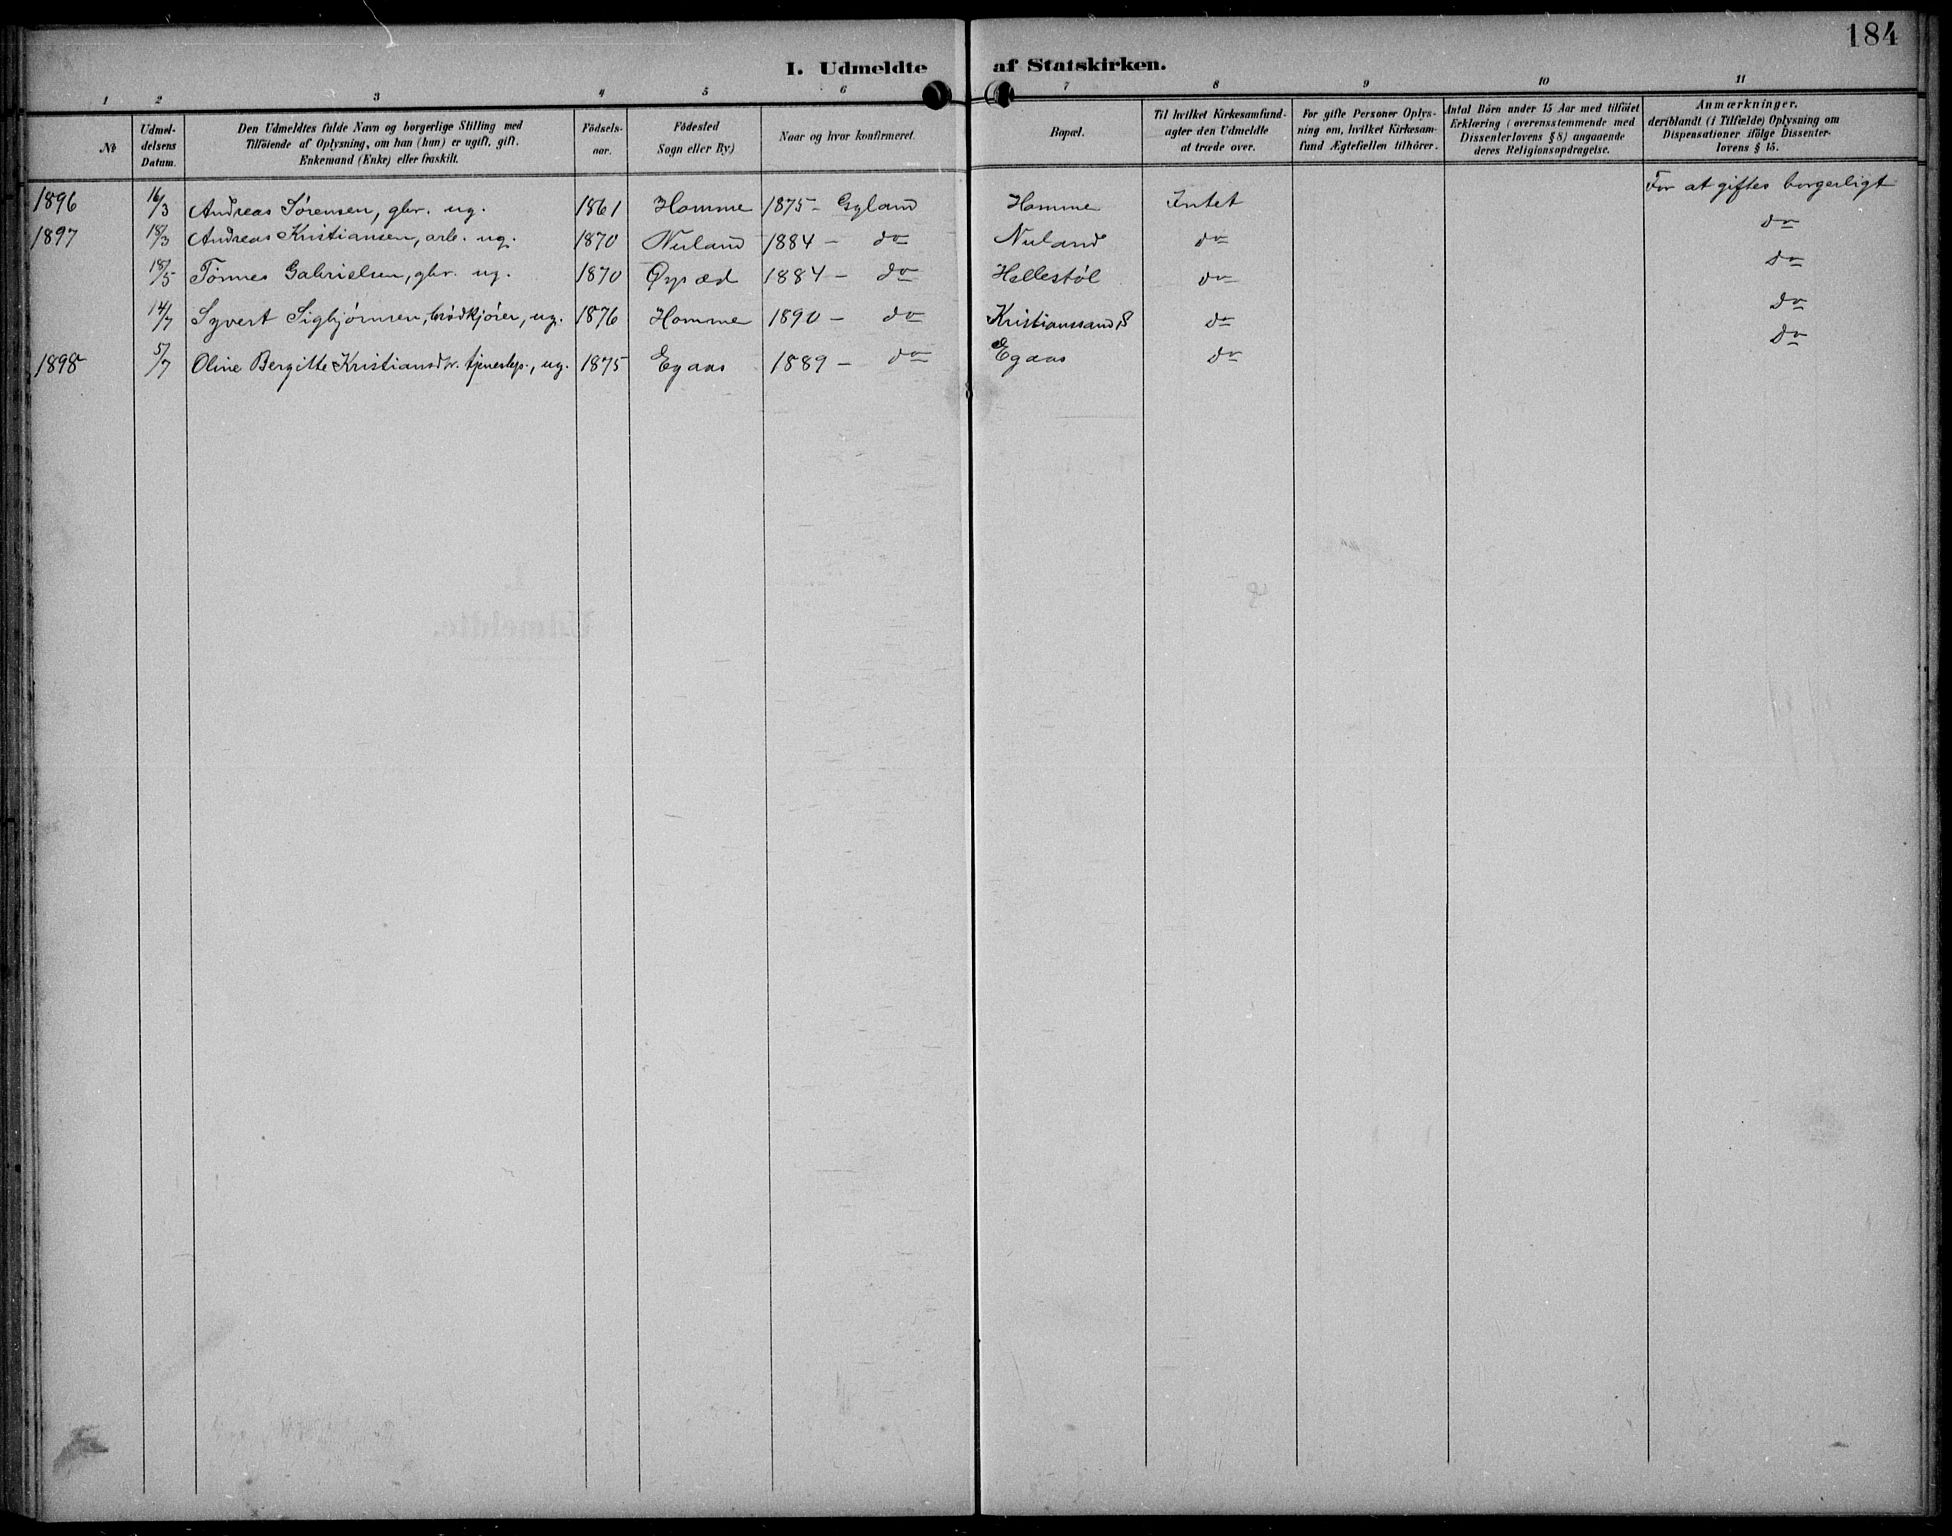 184
I. Udmeldte af Statskirken.
1 2 3 4 5 6 7 8 9 10 11
№
Udmel-
delsens
Datum.
Den Udmeldtes fulde Navn og borgerlige Stilling med
Tilföiende af Oplysning, om han (hun) er ugift, gift,
Enkemand (Enke) eller fraskilt.
Födsels-
aar.
Födested
Sogn eller By)
Naar og hvor konfirmeret.
Bopæl.
Til hvilket Kirkesamfund-
agter den Udmeldte
at træde over.
For gifte Personer Oplys-
ning om, hvilket Kirkesam-
fund Ægtefællen tilhörer.
Antal Börn under 15 Aar med tilföiet
Erklæring (overensstemmende med
Dissenterlovens § 8) angaaende
deres Religionsopdragelse.
Anmærkninger,
deriblandt (i Tilfælde) Oplysning om
Dispensationer ifölge Dissenter-
lovens § 15.
1896 16/3 Andreas Sørensen, gbr. ug. 1861 Homme 1875 - Gyland Homme Intet For at giftes borgerligt
1897 18/3 Andreas Kristiansen, arb. ug. 1870 Nuland 1884 - do Nuland do do
18/5 Tønnes Gabrielsen, gbr. ug. 1870 1884 - do Hellestøl do do
14/7 Syvert Sigbjørnsen, brødkjører, ug. 1876 Homme 1890 - do Kristianssand S do do
1898 5/7 Oline Bergitte Kristiansdr. tjenestep., ug. 1875 Egaas 1889 - do Egaas do do